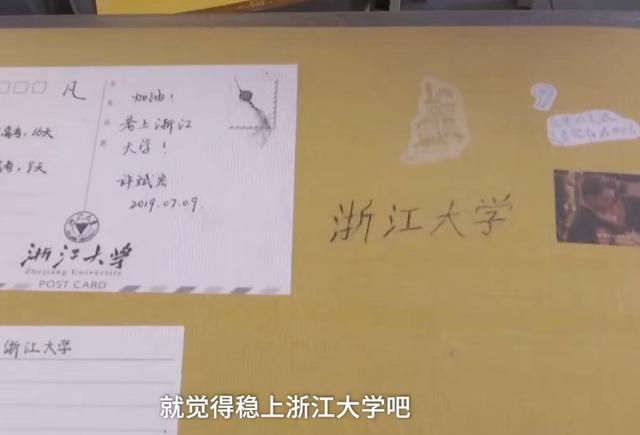 凡
高考,16天
考,9天
加油!
考上浙江
大学!
许斌宏
2019.07.09.
浙江大学
Zhejiang University
POST CARD
9
浙江大学
浙江大学
就觉得稳上浙江大学吧